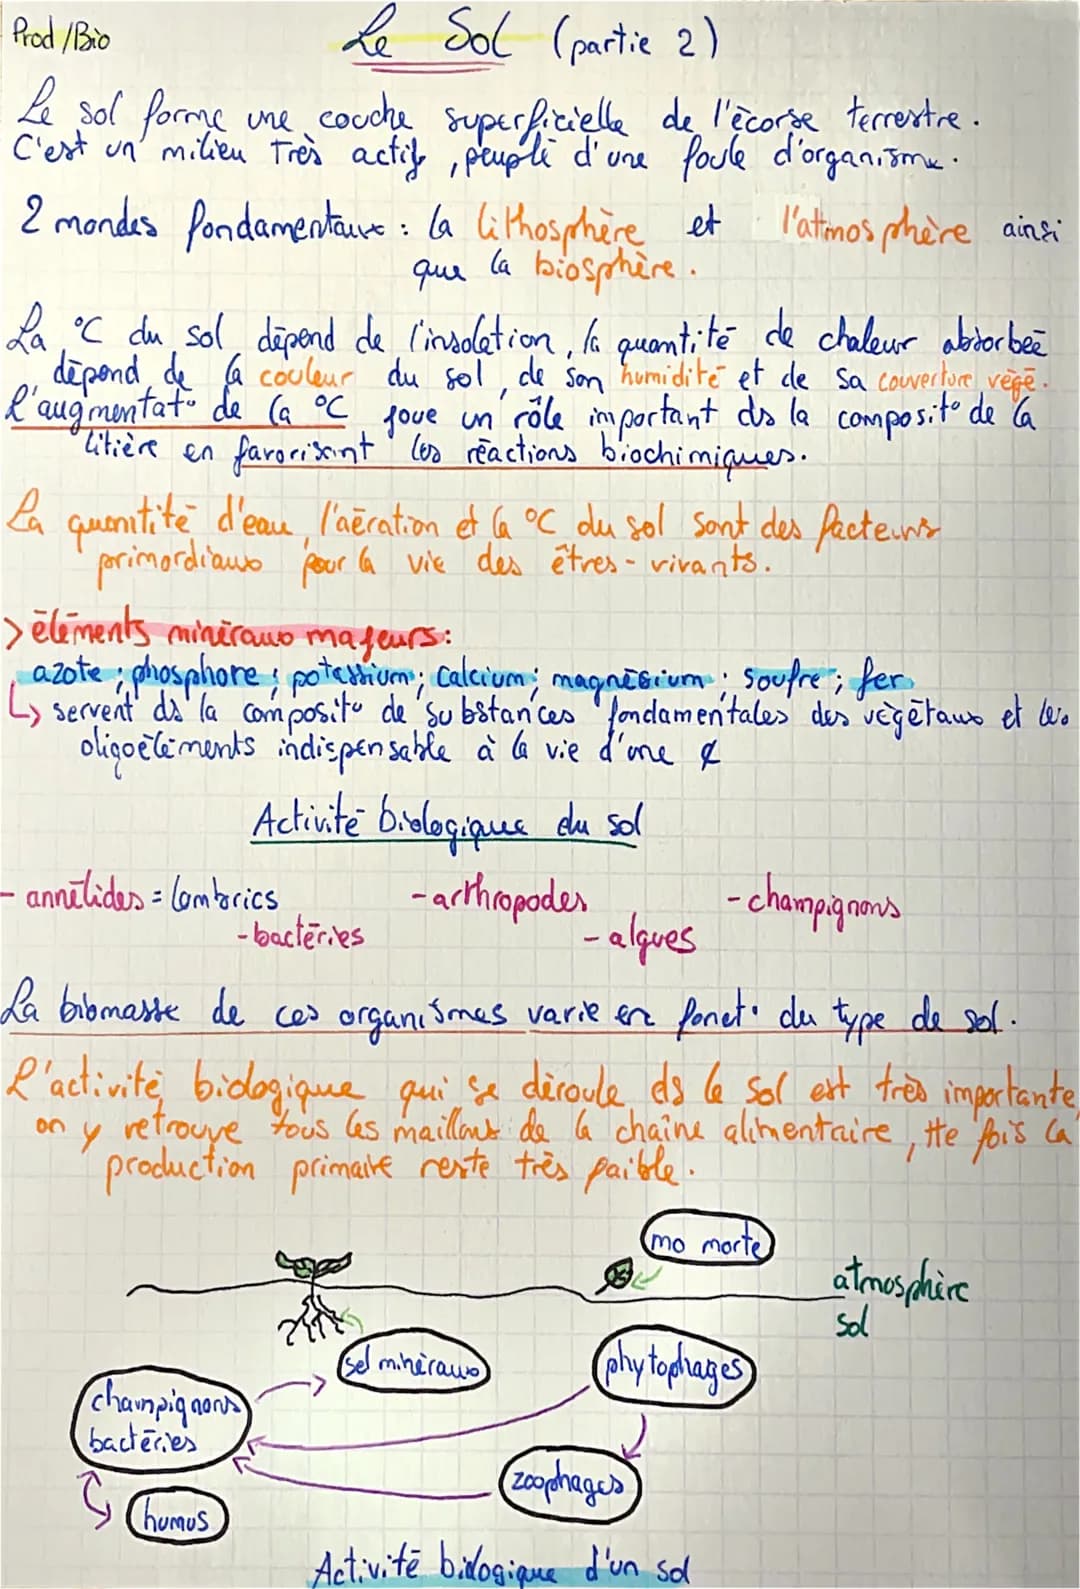 Prod/Bio
Le Sol (partie 2)
Le sol forme une couche superficielle de l'ècorse terrestre.
C'est un milieu très actif, peuplé d'une foule d'organisme.
2 mondes fondamentaux : la lithosphère et l'atmosphère ainsi
que la biosphère.
La °C du sol dépend de l'insolation, la quantité de chaleur absorbeé
dépend de la couleur du sol, de son humidité et de sa couverture végé.
L'augmentat° de la °C joue un rôle important ds la composit° de la
litière en favorisant les réactions biochimiques.
La quantité d'eau, l'aération et la °C du sol sont des facteurs
primordiaux pour la vie des êtres-vivants.
> éléments minéraux majeurs:
azote ; phosphore ; potassium ; calcium ; magnésium ; soufre ; fer
↳ servent ds la composit° de substances fondamentales des végétaux et les
oligoéléments indispensable à la vie d'une ¢
Activité biologique du sol
- annélides = lombrics - arthropodes - champignons
- bactéries - algues
La biomasse de ces organismes varie en fonct° du type de sol.
L'activité biologique qui se déroule ds le sol est très importante,
on y retrouve tous les maillons de la chaîne alimentaire, tte fois la
production primaire reste très faible.
mo morte
atmosphère
sol
sel minéraux
phytophages
champignons
bactéries
zoophages
humus
Activité biologique d'un sol